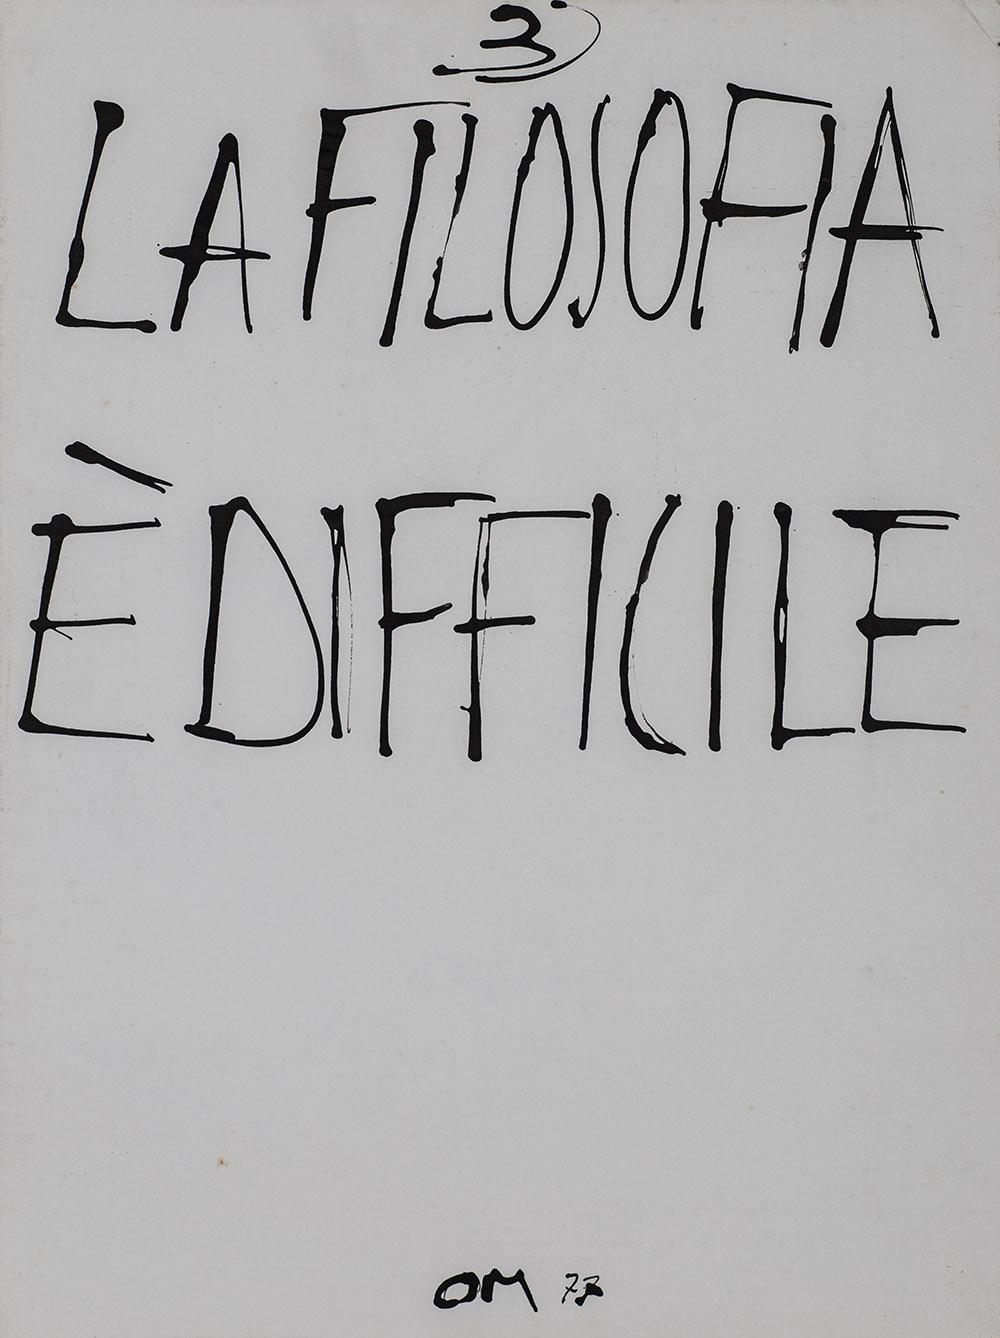 3)
LA FILOSOFIA
È DIFFICILE
OM 77